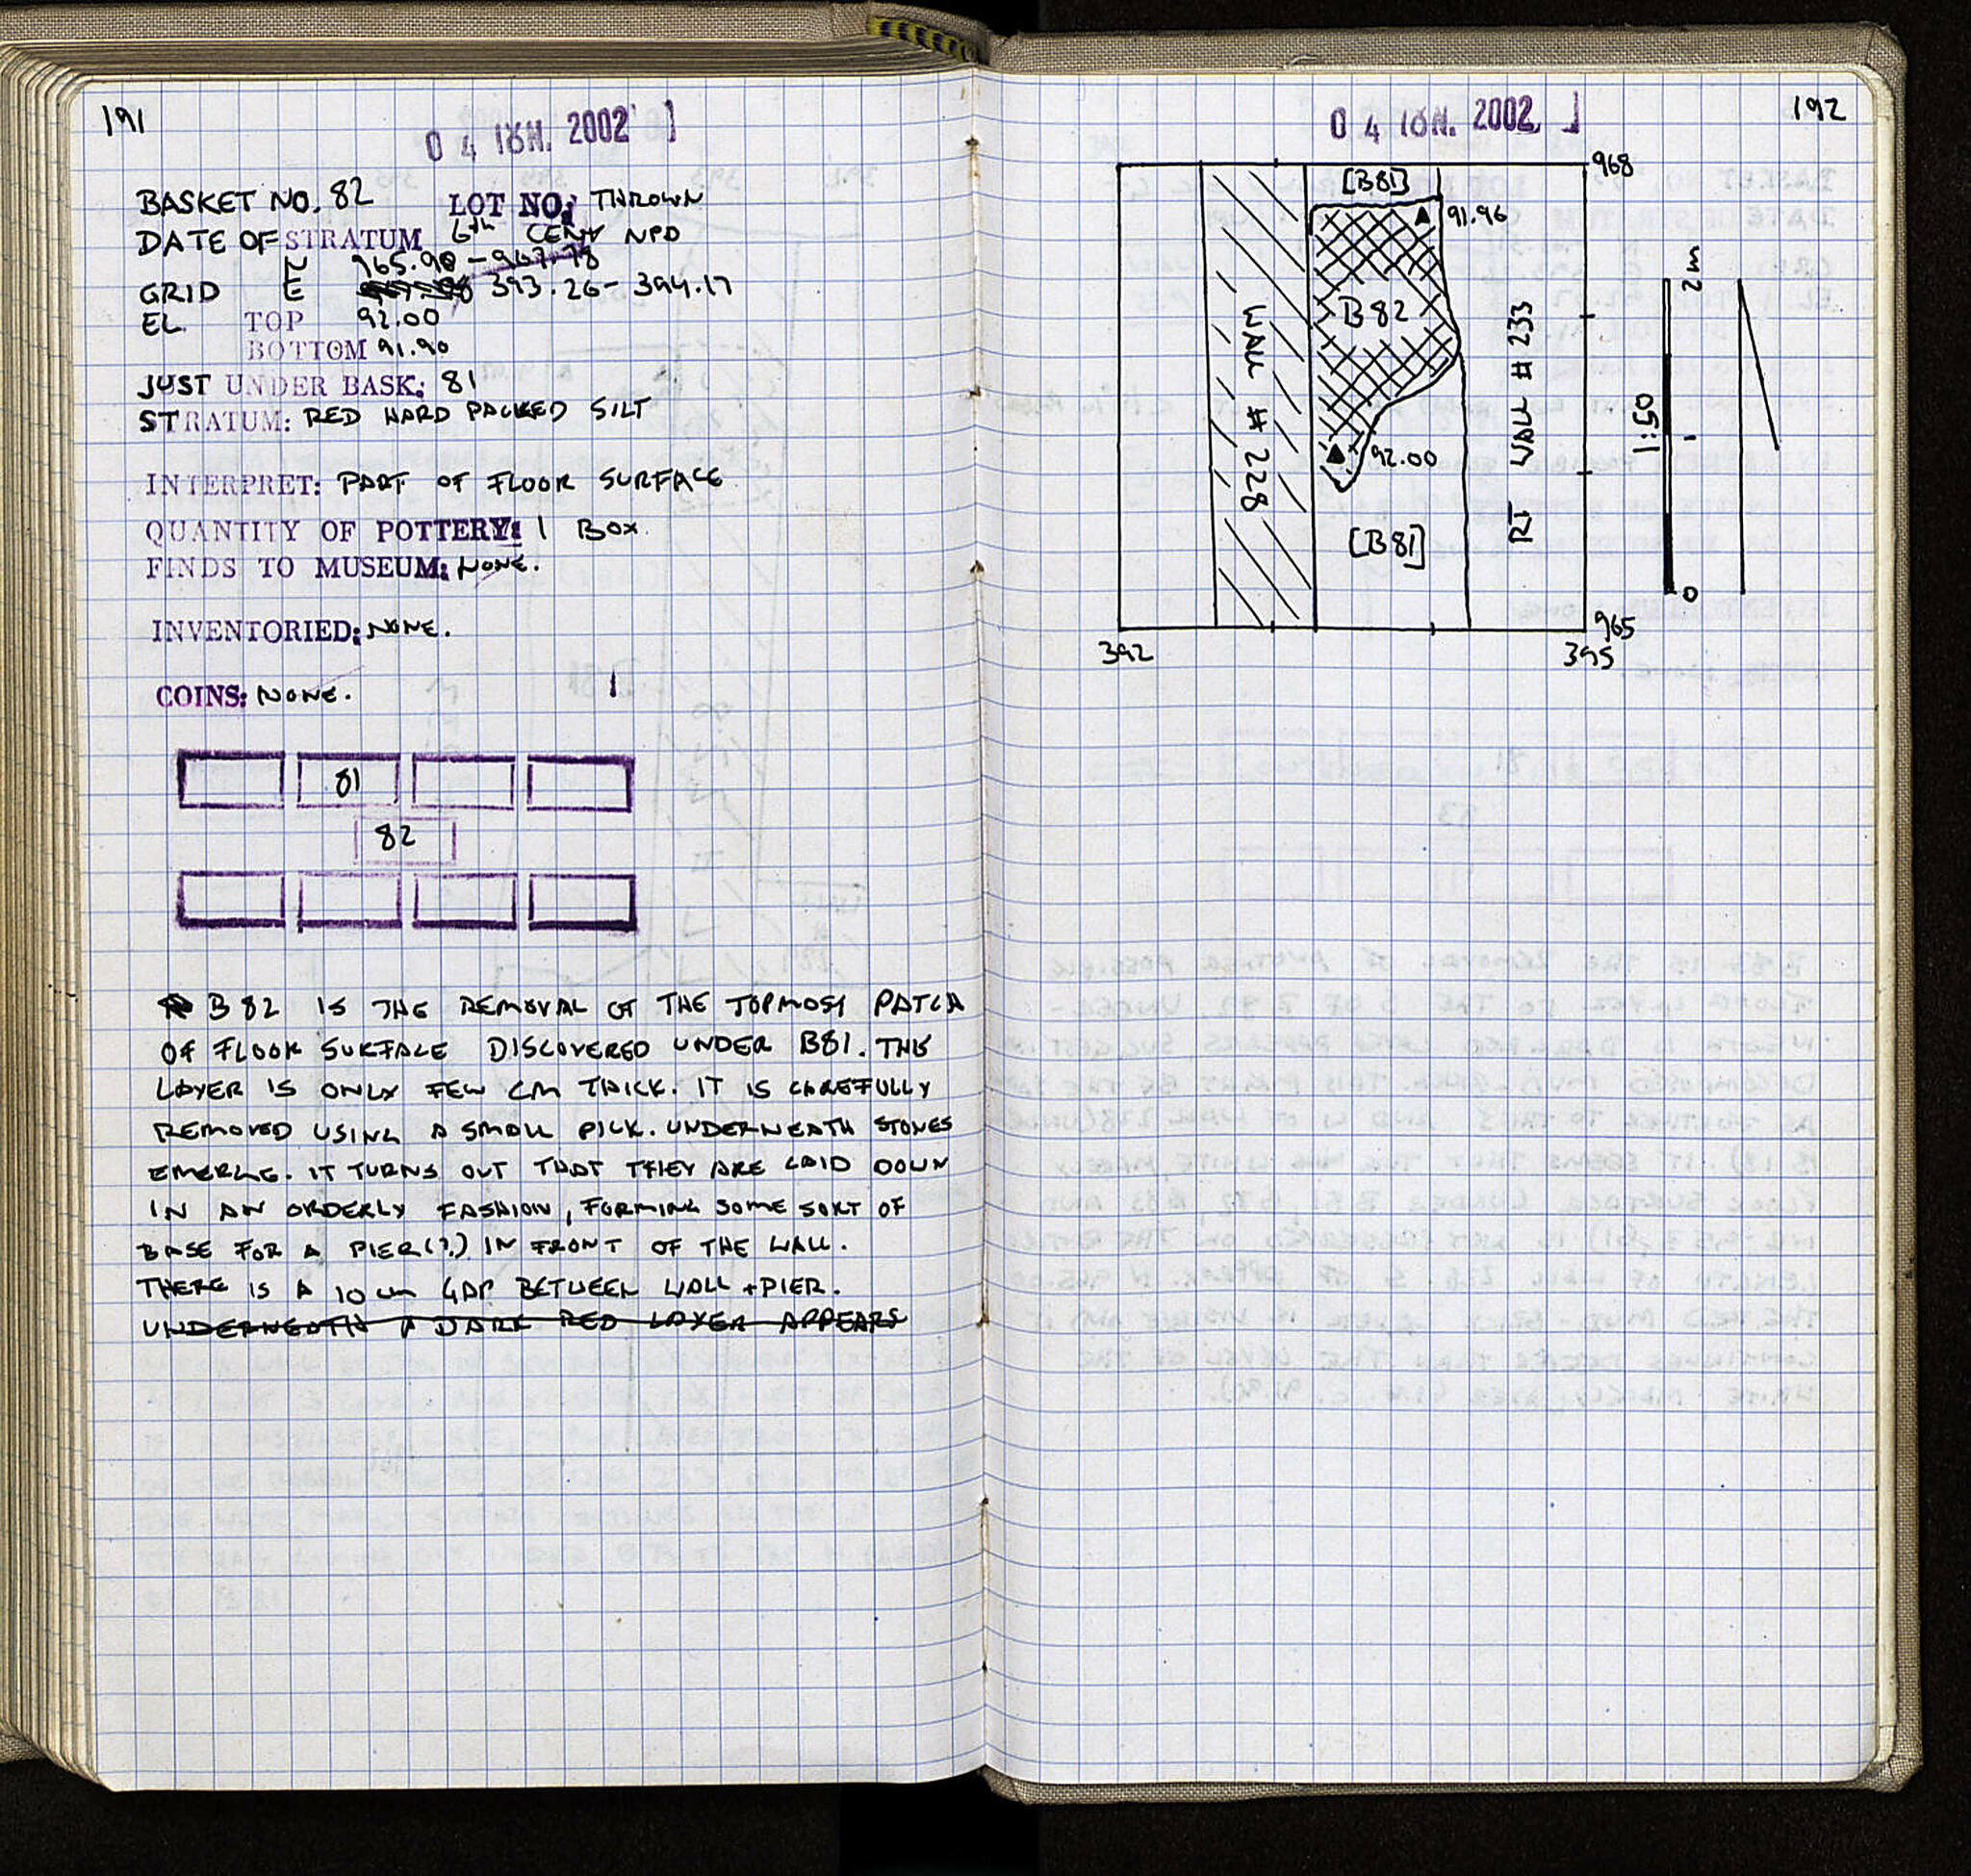 191
0 4 ΙΟΥΝ. 2002
BASKET NO. 82 LOT NO: THROWN
DATE OF STRATUM 6th CENT NPD
N 965.90 - 967.78
GRID E 393.26 - 394.17
EL. TOP 92.00
BOTTOM 91.90
JUST UNDER BASK: 81
STRATUM: RED HARD PACKED SILT
INTERPRET: PART OF FLOOR SURFACE
QUANTITY OF POTTERY: 1 BOX.
FINDS TO MUSEUM: NONE.
INVENTORIED: NONE.
COINS: NONE.
81
82
B 82 IS THE REMOVAL OF THE TOPMOST PATCH
OF FLOOR SURFACE DISCOVERED UNDER B81. THIS
LAYER IS ONLY FEW CM THICK. IT IS CAREFULLY
REMOVED USING A SMALL PICK. UNDERNEATH STONES
EMERGE. IT TURNS OUT THAT THEY ARE LAID DOWN
IN AN ORDERLY FASHION, FORMING SOME SORT OF
BASE FOR A PIER(?) IN FRONT OF THE WALL.
THERE IS A 10 cm GAP BETWEEN WALL + PIER.
UNDERNEATH A DARK RED LAYER APPEARS
0 4 ΙΟΥΝ. 2002
192
968
[B81]
91.96
B 82
WALL # 228
RT WALL # 233
92.00
[B81]
965
392
395
2 m
1
0
1:50